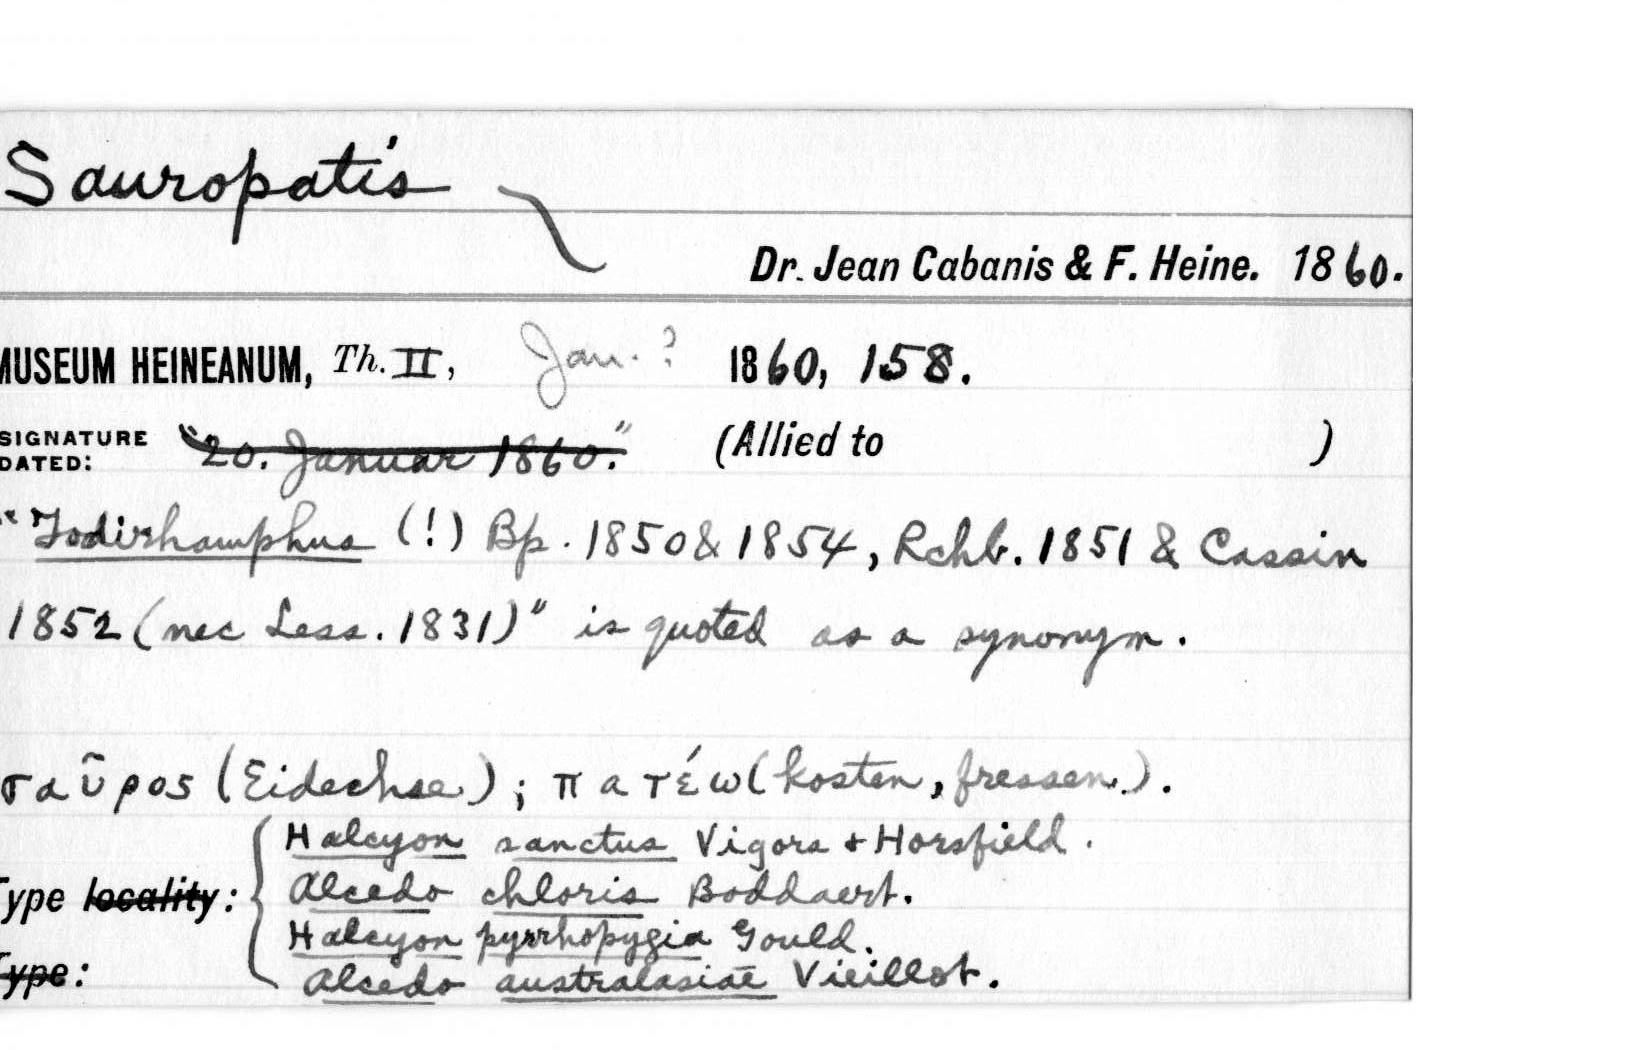 Sauropatis
Dr. Jean Cabanis & F. Heine. 1860.
MUSEUM HEINEANUM, Th. II, Jan. ? 1860, 158.
SIGNATURE DATED: "20. Januar 1860." (Allied to )
"Todirhamphus (!) Bp. 1850 & 1854, Rchb. 1851 & Cassin
1852 (nec Less. 1831)" is quoted as a synonym.
σαῦρος (Eidechse); πατέω (kosten, fressen).
Halcyon sanctus Vigors & Horsfield.
Type locality: Alcedo chloris Boddaert.
Halcyon pyrrhopygia Gould.
Type: Alcedo australasiae Vieillot.